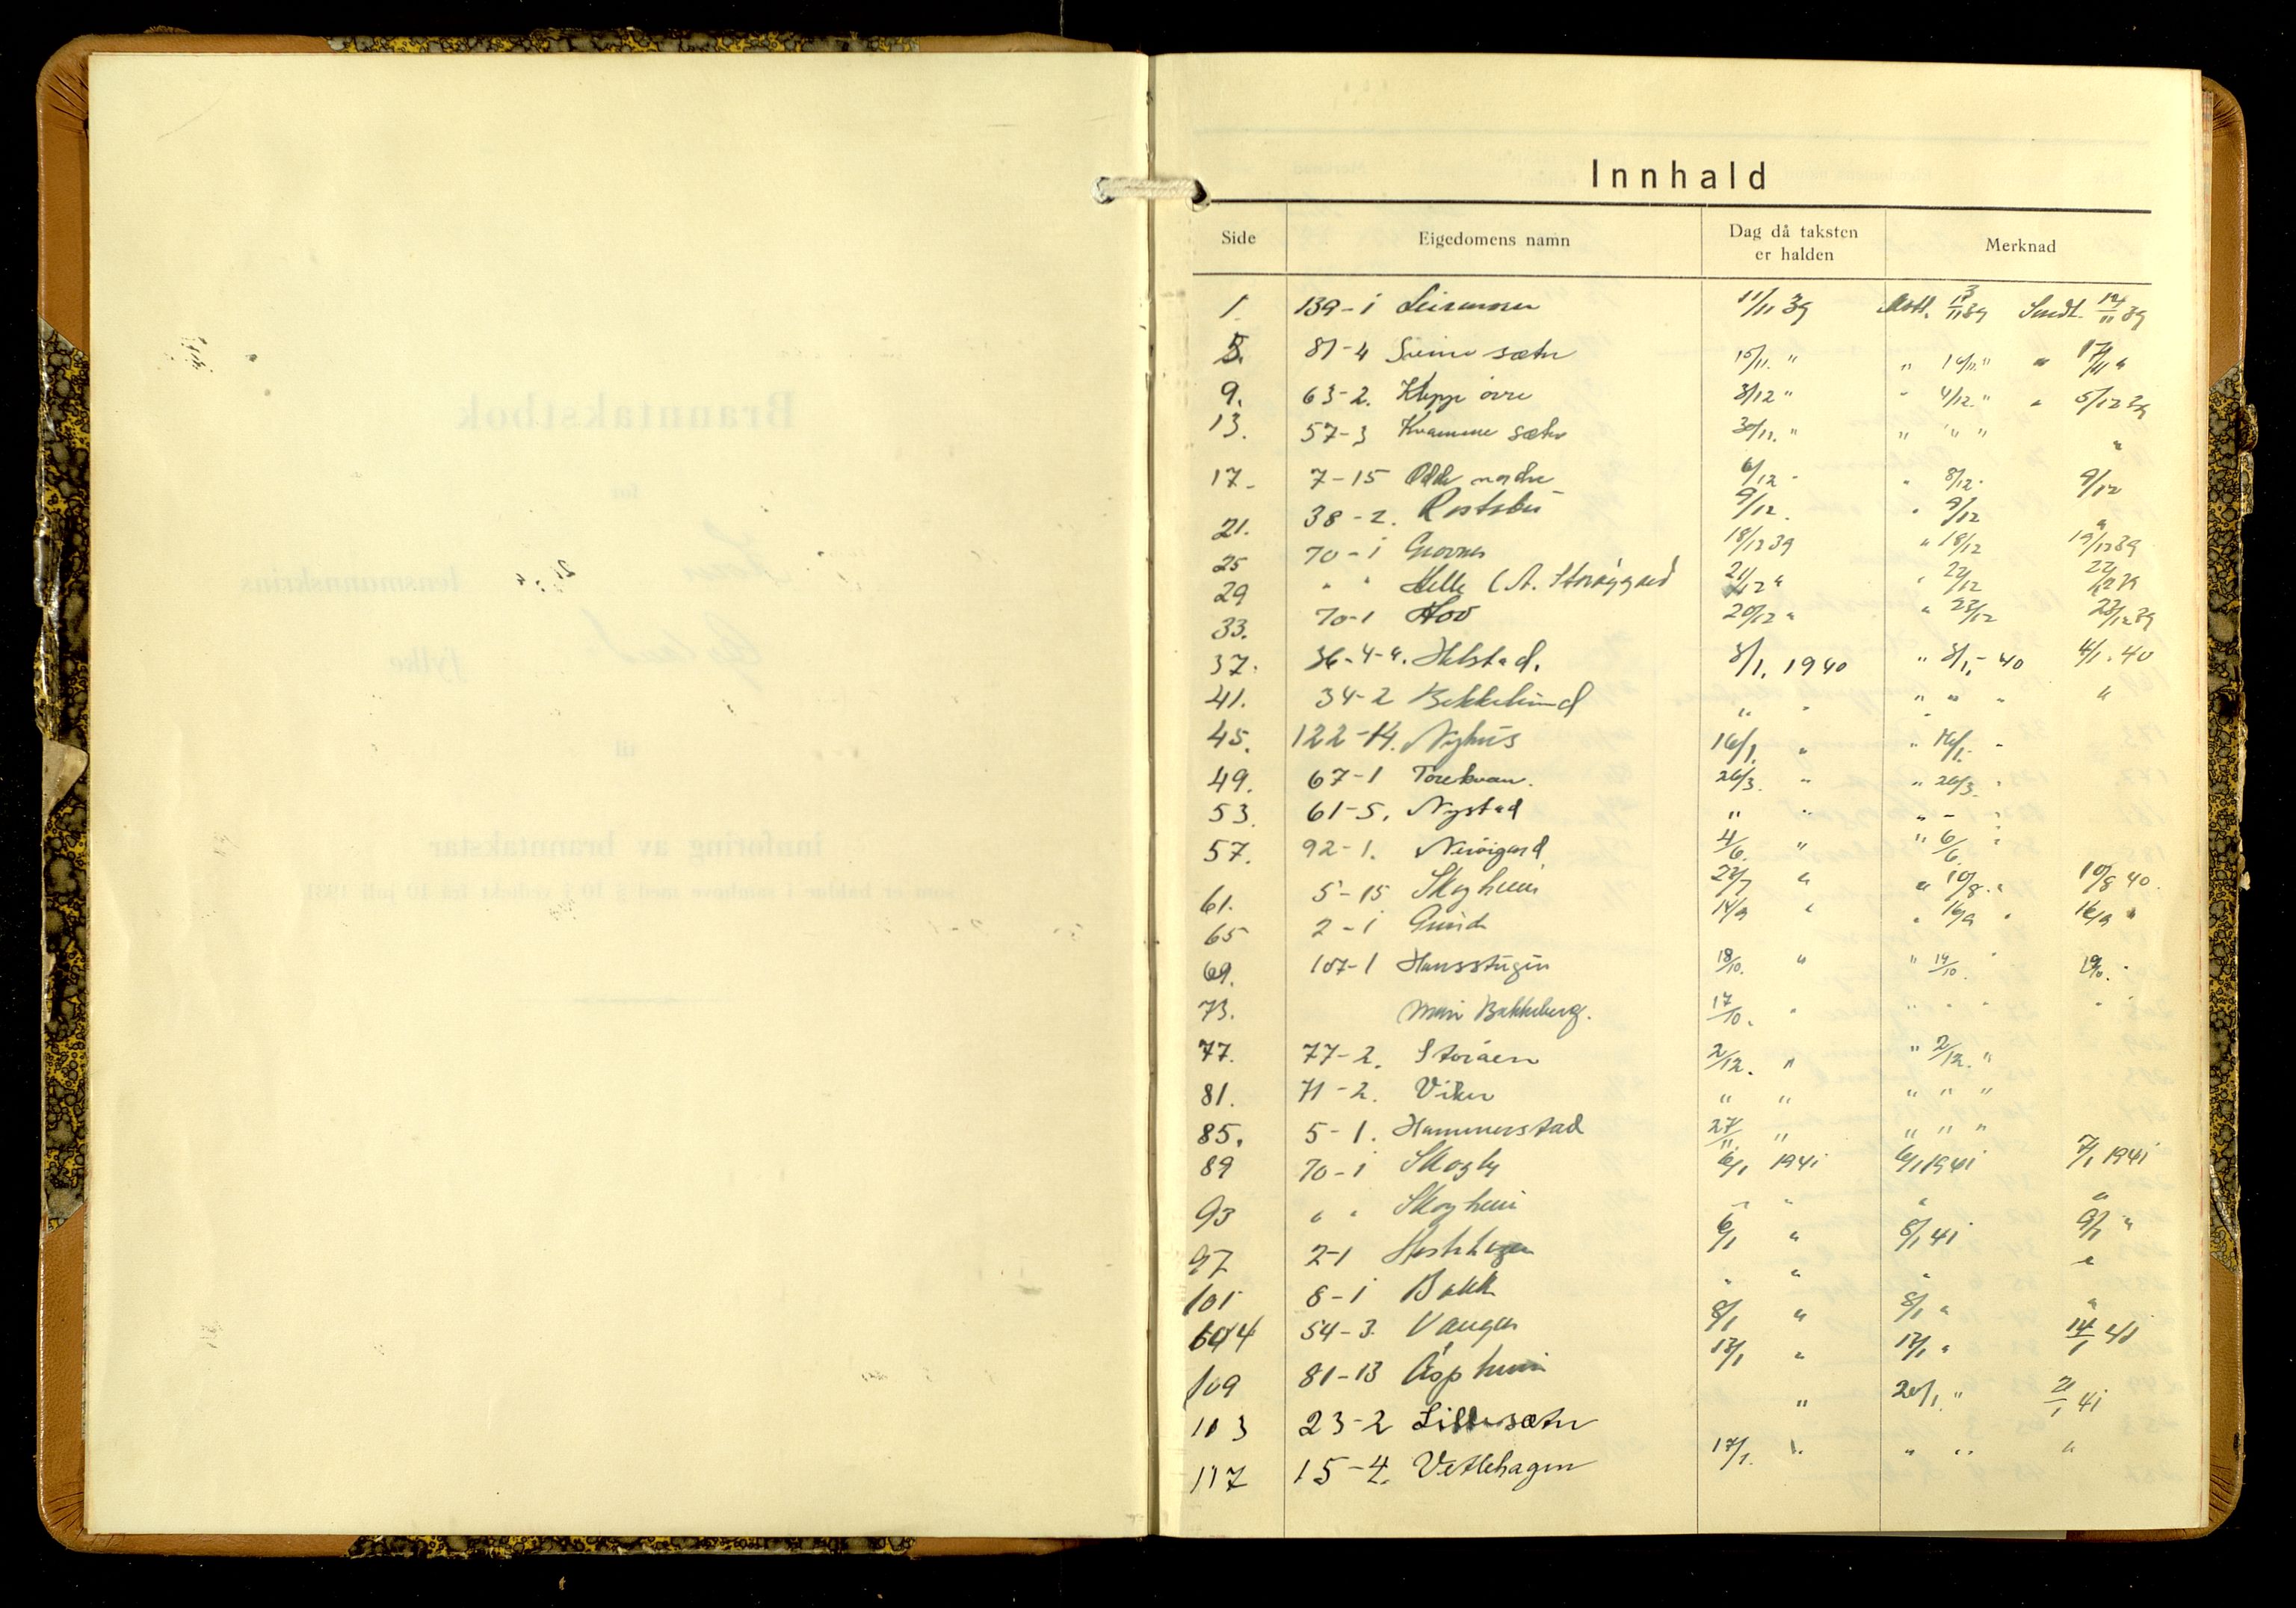 Innhald
Side Eigedomens namn Dag då taksten er halden Merknad
1 139-1 11/11 39 Mott. 13/11 39 Sendt. 14/11 39
5. 81-4 sæter 15/11. " " 16/11. " " 17/11 "
9. 63-2. Klepp øvre 3/12 " " 4/12. " " 5/12 39
13. 57-3 Kvamme sæter 30/11. " " " " "
17. 7-15 Odde nordre 6/12 - " 8/12 - 9/12
21. 38-2. Rostsbu 9/12. " 9/12 "
25 70-1 18/12 39 " 18/12 19/12 39
29 " " Helle (A. Storøygard 21/12 " " 22/12 22/12 39
33. 70-1 Hov 20/12 " " 23/12 23/12 39
37. 36-4-9. Helstad. 3/1. 1940 " 3/1.-40 4/1.40
41. 34-2 Bekkelund " " " " " "
45. 122-14. Nyhus 16/1. " " 16/1. "
49. 67-1 26/3. " " 26/3. "
53. 61-5. Nystad " " " - "
57. 92-1. Nerøigard 4/6. " " 6/6. "
61. 5-15 Skogheim 27/7 " " 10/8. " 10/8 40.
65 2-1 14/9 " " 16/9 " 16/9 "
69. 107-1 Hansstugun 18/10. " " 19/10. " 19/10. "
73. Mari Bakkeberg. 17/10. " " " " " "
77. 77-2. Storåen 2/12. " " 2/12. "
81. 71-2. Viken " " " " "
85. 5-1. Hammerstad 27/11 " " " "
89 70-1 Skogly 6/1 1941 6/1 1941 7/1 1941
93 " " Skogheim " " " "
97 2-1 Hestehagen 6/1 " 8/1 41 9/1 "
101 8-1 Bakk " " " "
54-3. Vangen 8/1 " 8/1 " "
109 81-13 Aspheim 13/1 " 13/1 " 14/1 41
113 23-2 Lillesæter " 20/1. " 21/1 41
117 15-4. Vetlehagen 17/1. " " " "